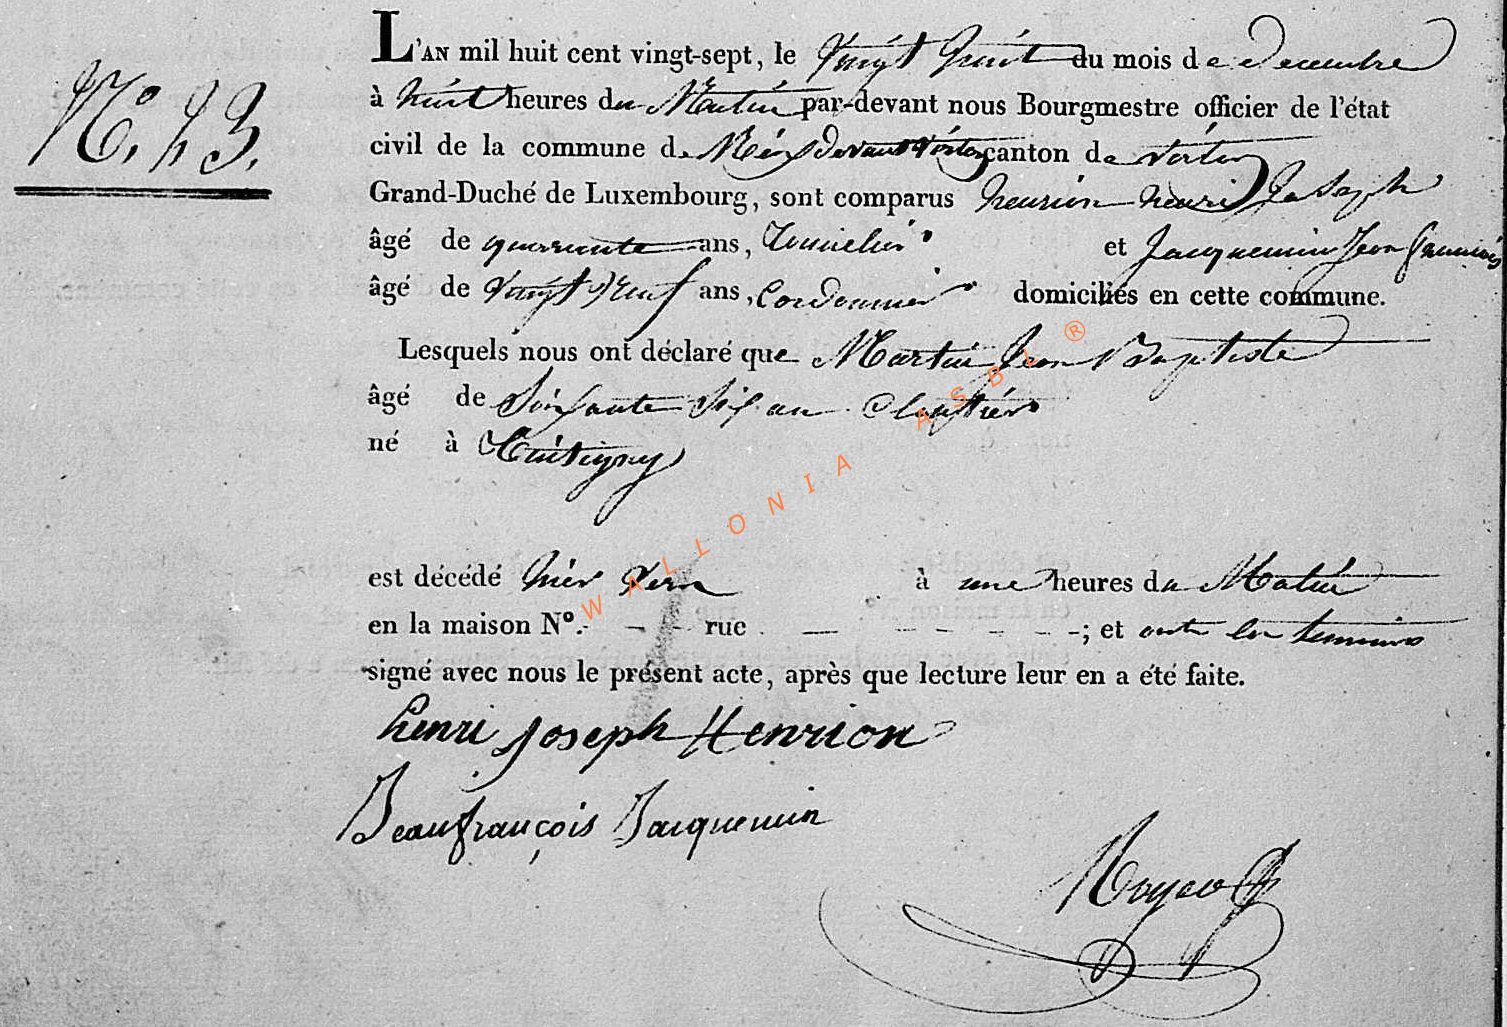 L'AN mil huit cent vingt-sept, le vingt huit du mois de decembre
N.º 43.
à huit heures du Matin par-devant nous Bourgmestre officier de l'état
civil de la commune de Méix devant virton canton de virton
Grand-Duché de Luxembourg, sont comparus henrion henri Joseph
âgé de quarrante ans, Tonnelier et Jacquemin Jean françois
âgé de vingt neuf ans, Cordonnier domiciliés en cette commune.
Lesquels nous ont déclaré que Martin Jean Baptiste
âgé de Soixante Six an Cloutier
né à
est décédé hier à une heures du Matin
en la maison Nº. - - - rue - - - - - - -; et ont les temoins
signé avec nous le présent acte, après que lecture leur en a été faite.
henri joseph Henrion
Jeanfrançois Jacquemin
WALLONIA ASBL ®